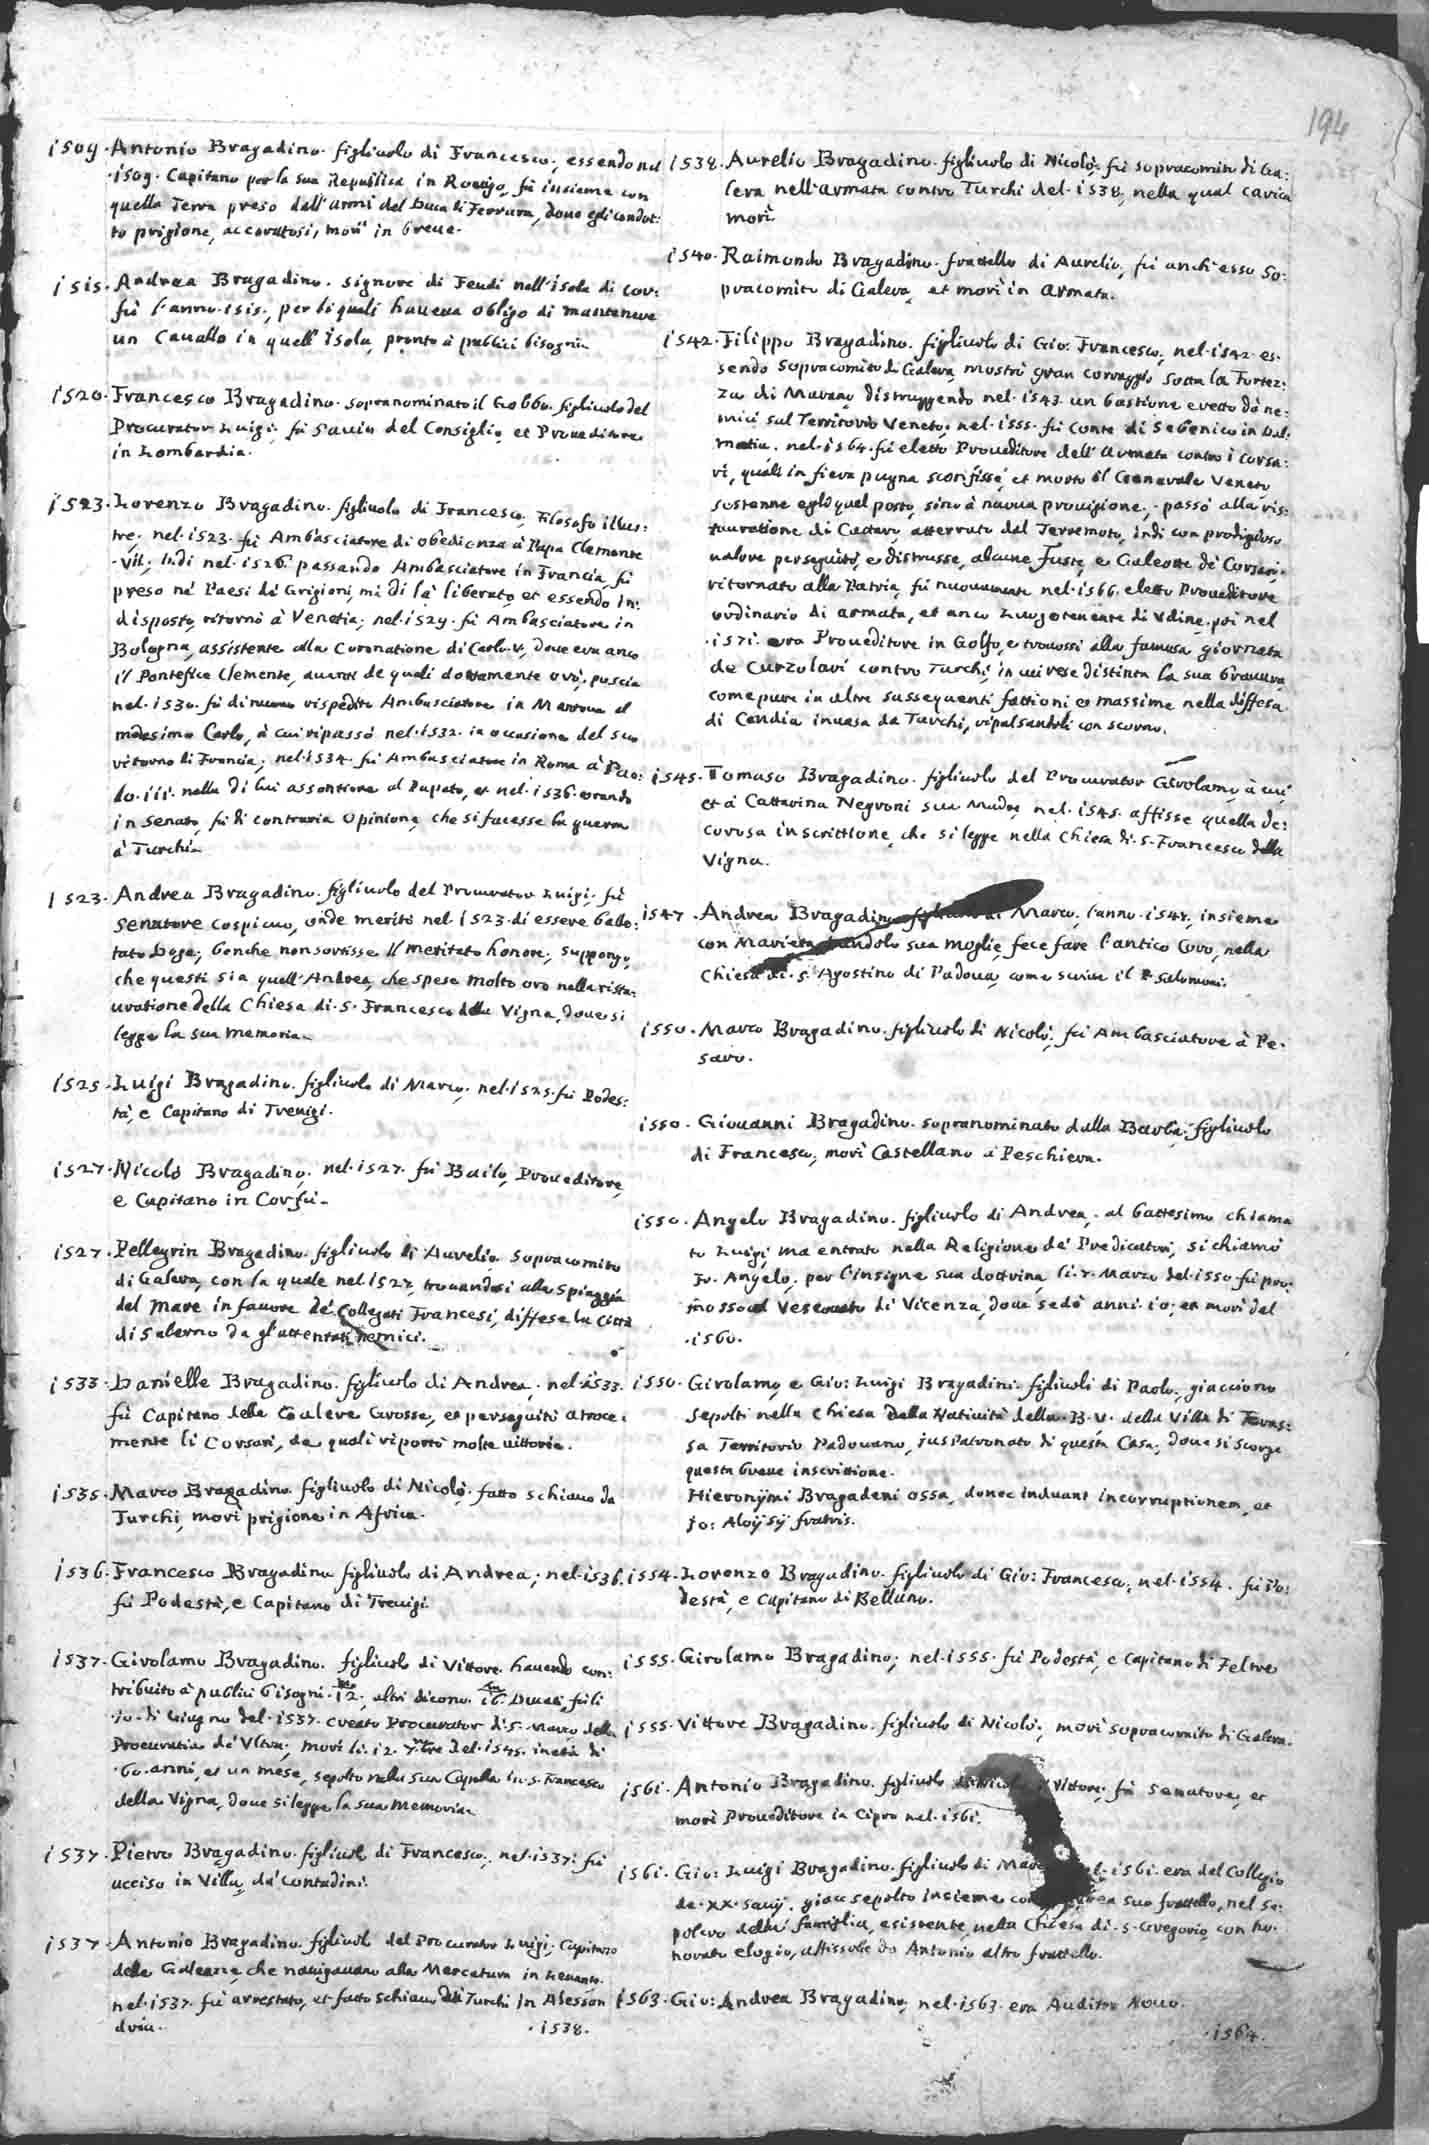 194
1509. Antonio Bragadino. figliuolo di Francesco, essendo nel
.1509. Capitano per la sua Republica in Rouigo, fù insieme con
quella Terra preso dall'armi del Duca di Ferrara, doue egli condot:
to prigione, accoratosi, morì in breue.
1515. Andrea Bragadino. signore di Feudi nell'isola di Cor:
fù l'anno .1515., per li quali haueua obligo di mantenere
un Cauallo in quell'isola, pronto à publici bisogni.
1520. Francesco Bragadino. sopranominato il Gobbo. figliuolo del
Procurator Luigi; fù Sauio del Consiglio, et Proueditore
in Lombardia.
1523. Lorenzo Bragadino. figliuolo di Francesco, Filosofo illus:
tre; nel .1523. fù Ambasciatore di obedienza à Papa Clemente
.VII; Indi nel .1526. passando Ambasciatore in Francia, fù
preso ne' Paesi de' Grigioni, mà di là liberato, et essendo in:
disposto, ritornò à Venetia; nel .1529. fù Ambasciatore in
Bologna, assistente alla Coronatione di Carlo .V., doue era anco
il Pontefice Clemente, auanti de quali dottamente orò; poscia
nel .1530. fù di nuouo rispedito Ambasciatore in Mantoua al
medesimo Carlo, à cui ripassò nel .1532. in occasione del suo
ritorno di Francia; nel .1534. fù Ambasciatore in Roma à Pao:
lo .III. nella di lui assontione al Papato, et nel .1536. orando
in Senato, fù di contraria opinione, che si facesse la guerra
à Turchi.
1523. Andrea Bragadino. figliuolo del Procurator Luigi, fù
senatore cospicuo, onde meritò nel 1523. di essere ballo:
tato Doge; benche non sortisse il meritato honore; suppongo,
che questi sia quell'Andrea, che spese molto oro nella rista:
uratione della Chiesa di .S. Francesco della Vigna, doue si
legge la sua memoria.
1525. Luigi Bragadino. figliuolo di Marco; nel .1525. fù Podes:
tà, e Capitano di Treuigi.
1527. Nicolò Bragadino; nel .1527. fù Bailo, Proueditore,
e Capitano in Corfù.
1527. Pellegrin Bragadino. figliuolo di Aurelio. Sopracomito
di Galera, con la quale nel 1527. trouandosi alla spiaggia
del Mare in fauore de' Collegati Francesi, diffese la Città
di Salerno da gl'attentati nemici.
1533. Danielle Bragadino. figliuolo di Andrea; nel .1533.
fù Capitano delle Galere Grosse, et perseguitò atroce:
mente li Corsari, da quali riportò molte uittorie.
1535. Marco Bragadino. figliuolo di Nicolò. fatto schiauo da
Turchi, morì prigione in Africa.
1536. Francesco Bragadino figliuolo di Andrea; nel .1536.
fù Podestà, e Capitano di Treuigi.
1537. Girolamo Bragadino. figliuolo di Vittore. hauendo con:
tribuito à publici bisogni .12., altri dicono .16. Ducati, fù li
.10. di Giugno del .1537. creato Procurator di S. Marco della
Procuratia de' Vltra; morì li .12. 7.bre del .1545. in età di
.60. anni, et un mese, sepolto nella sua Capella in .S. Francesco
della Vigna, doue si legge la sua memoria.
1537. Pietro Bragadino. figliuolo di Francesco; nel .1537. fù
ucciso in Villa, da' contadini.
1537. Antonio Bragadino. figliuolo del Procurator Luigi. Capitano
delle Galeazze, che nauigauano alla Mercatura in Leuante.
nel .1537. fù arrestato, et fatto schiauo da Turchi in Alessan
dria.
.1538.
1538. Aurelio Bragadino. figliuolo di Nicolò; fù sopracomito di Ga:
lera nell'armata contro Turchi del .1538., nella qual carica
morì.
1540. Raimondo Bragadino. frattello di Aurelio, fù anch'esso So:
pracomito di Galera, et morì in Armata.
1542. Filippo Bragadino. figliuolo di Gio: Francesco, nel .1542. es:
sendo Sopracomito di Galera, mostrò gran corraggio sotto la Fortez:
za di Marano, distruggendo nel .1543. un bastione eretto da ne:
mici sul Territorio Veneto; nel .1555. fù Conte di Sebenico in Dal:
matia. nel .1564. fù eletto Proueditore dell'Armata contro i Corsa:
ri, quali in fiera pugna sconfisse, et morto il Generale Veneto
sostenne egli quel posto, sino à nuoua prouigione; passò alla ris:
tauratione di Cattaro, atterrato dal Terremoto, indi con prodigioso
ualore perseguitò, e distrusse, alcune Fuste, e Galeotte de' Corsari.
ritornato alla Patria, fù nuouamente nel .1566. eletto Proueditore
ordinario di armata, et anco Luogotenente di Vdine. poi nel
.1571. era Proueditore in Golfo, e trouossi alla famosa giornata
de Curzolari contro Turchi, in cui rese distinta la sua brauura,
come pure in altre susseguenti fattioni et massime nella diffesa
di Candia inuasa da Turchi, ripulsandoli con scorno.
1545. Tomaso Bragadino. figliuolo del Procurator Girolamo, à cui,
et à Cattarina Negroni sua Madre, nel .1545. affisse quella de:
corosa inscrittione, che si legge nella Chiesa di .S. Francesco della
Vigna.
1547. Andrea Bragadino figliuolo di Marco, l'anno .1547. insieme
con Marietta Dandolo sua moglie, fece fare l'antico Coro, nella
Chiesa di .S. Agostino di Padoua, come scriue il P. Salomoni.
1550. Marco Bragadino. figliuolo di Nicolò; fù Ambasciatore à Pe:
saro.
1550. Giouanni Bragadino. sopranominato dalla Barba, figliuolo
di Francesco, morì Castellano à Peschiera.
1550. Angelo Bragadino. figliuolo di Andrea, al battesimo chiama
to Luigi, ma entrato nella Religione de' Predicatori, si chiamò
Fr. Angelo; per l'insigne sua dottrina, li .7. Marzo del .1550. fù pro:
mosso al Vescouato di Vicenza, doue sedè anni .10; et morì del
.1560.
1550. Girolamo, e Gio: Luigi Bragadini. figliuoli di Paolo, giacciono
sepolti nella Chiesa della Natiuità della .B.V. della Villa di Teras:
sa Territorio Padouano, juspatronato di questa Casa, doue si scorge
questa breue inscrittione.
Hieronymi Bragadeni ossa, donec induant incorruptionem, et
Jo: Aloysij fratris.
1554. Lorenzo Bragadino. figliuolo di Gio: Francesco; nel .1554. fù Po:
destà, e Capitano di Belluno.
1555. Girolamo Bragadino; nel .1555. fù Podestà, e Capitano di Feltre
1555. Vittore Bragadino. figliuolo di Nicolò; morì sopracomito di Galera.
1561. Antonio Bragadino. figliuolo Vittore, fù senatore, et
morì Proueditore in Cipro nel .1561.
1561. Gio: Luigi Bragadino. figliuolo di .1561. era del Collegio
de .XX. Sauij. giace sepolto insieme con suo frattello, nel se:
polcro della famiglia, esistente, nella Chiesa di .S. Gregorio, con ho:
norato elogio, affissole da Antonio altro frattello.
1563. Gio: Andrea Bragadino; nel .1563. era Auditor Nouo.
.1564.